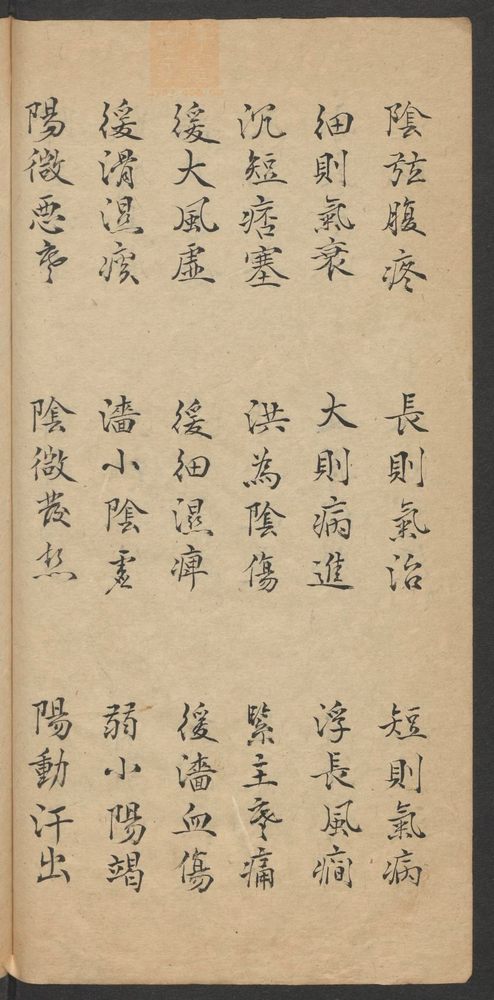 陰弦腹疼 長則氣治 短則氣病
細則氣衰 大則病進 浮長風癇
沉短痞塞 洪為陰傷 緊主寒痛
緩大風虛 緩細濕痺 緩濇血傷
緩滑濕痰 濇小陰虛 弱小陽竭
陽微惡寒 陰微發熱 陽動汗出